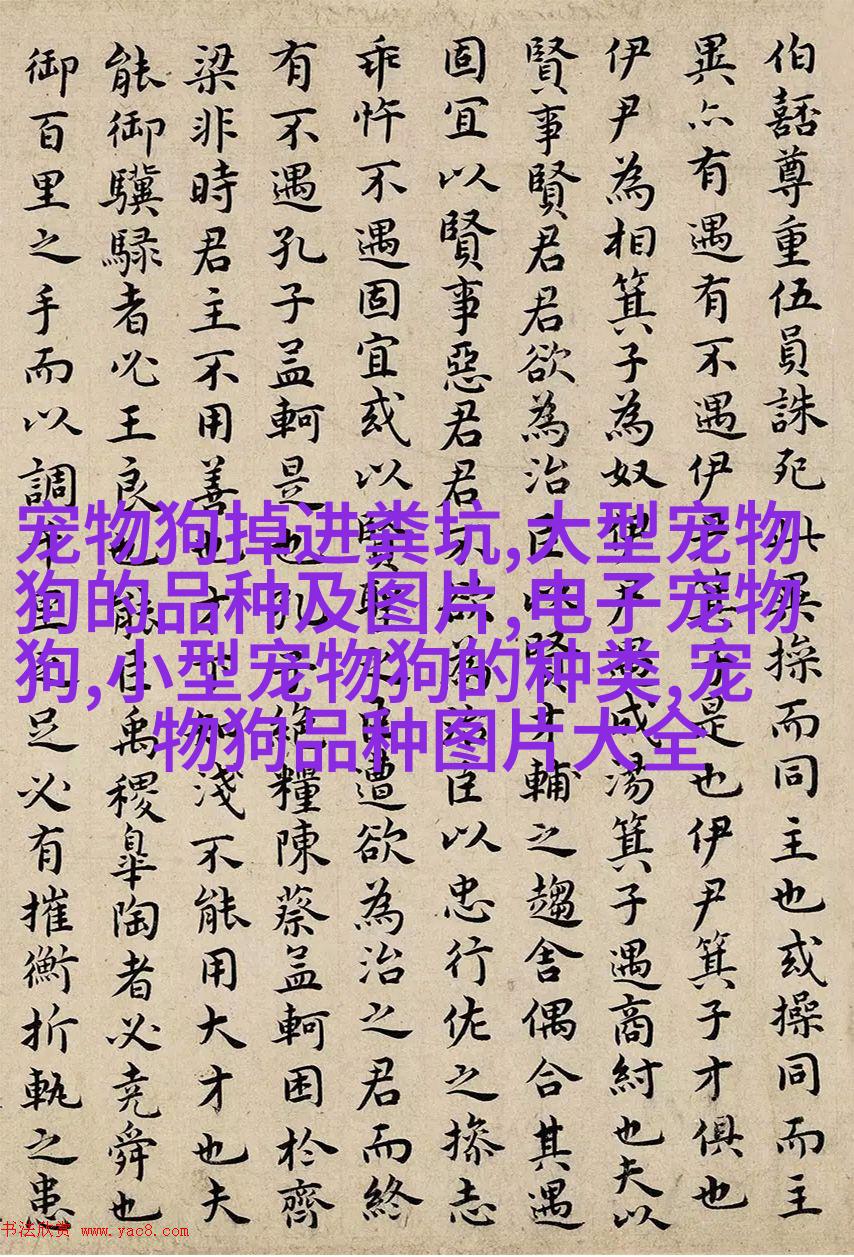 伯嚭尊重伍員誅死此異操而同主也或操同而主
異亦有遇有不遇伊尹箕子是也伊尹箕子才俱也
伊尹為相箕子為奴伊尹遇成湯箕子遇商紂也夫以
賢事賢君君欲為治臣以賢才輔之趨舍偶合其遇
固宜以賢事惡君君不欲為治臣以忠行佐之操志
乖忤不遇固宜或以賢聖之臣遭欲為治之君而終
有不遇孔子孟軻是也孔子絕糧陳蔡孟軻困於齊
梁非時君主不用善也才下知淺不能用大才也夫
能御驥騄者必王良也能臣禹稷皐陶者必堯舜也
御百里之手而以調千里之足必有摧衡折軛之患
宠物狗掉进粪坑,大型宠物
狗的品种及图片,电子宠物
狗,小型宠物狗的种类,宠
物狗品种图片大全
书法欣赏 www.yac8.com